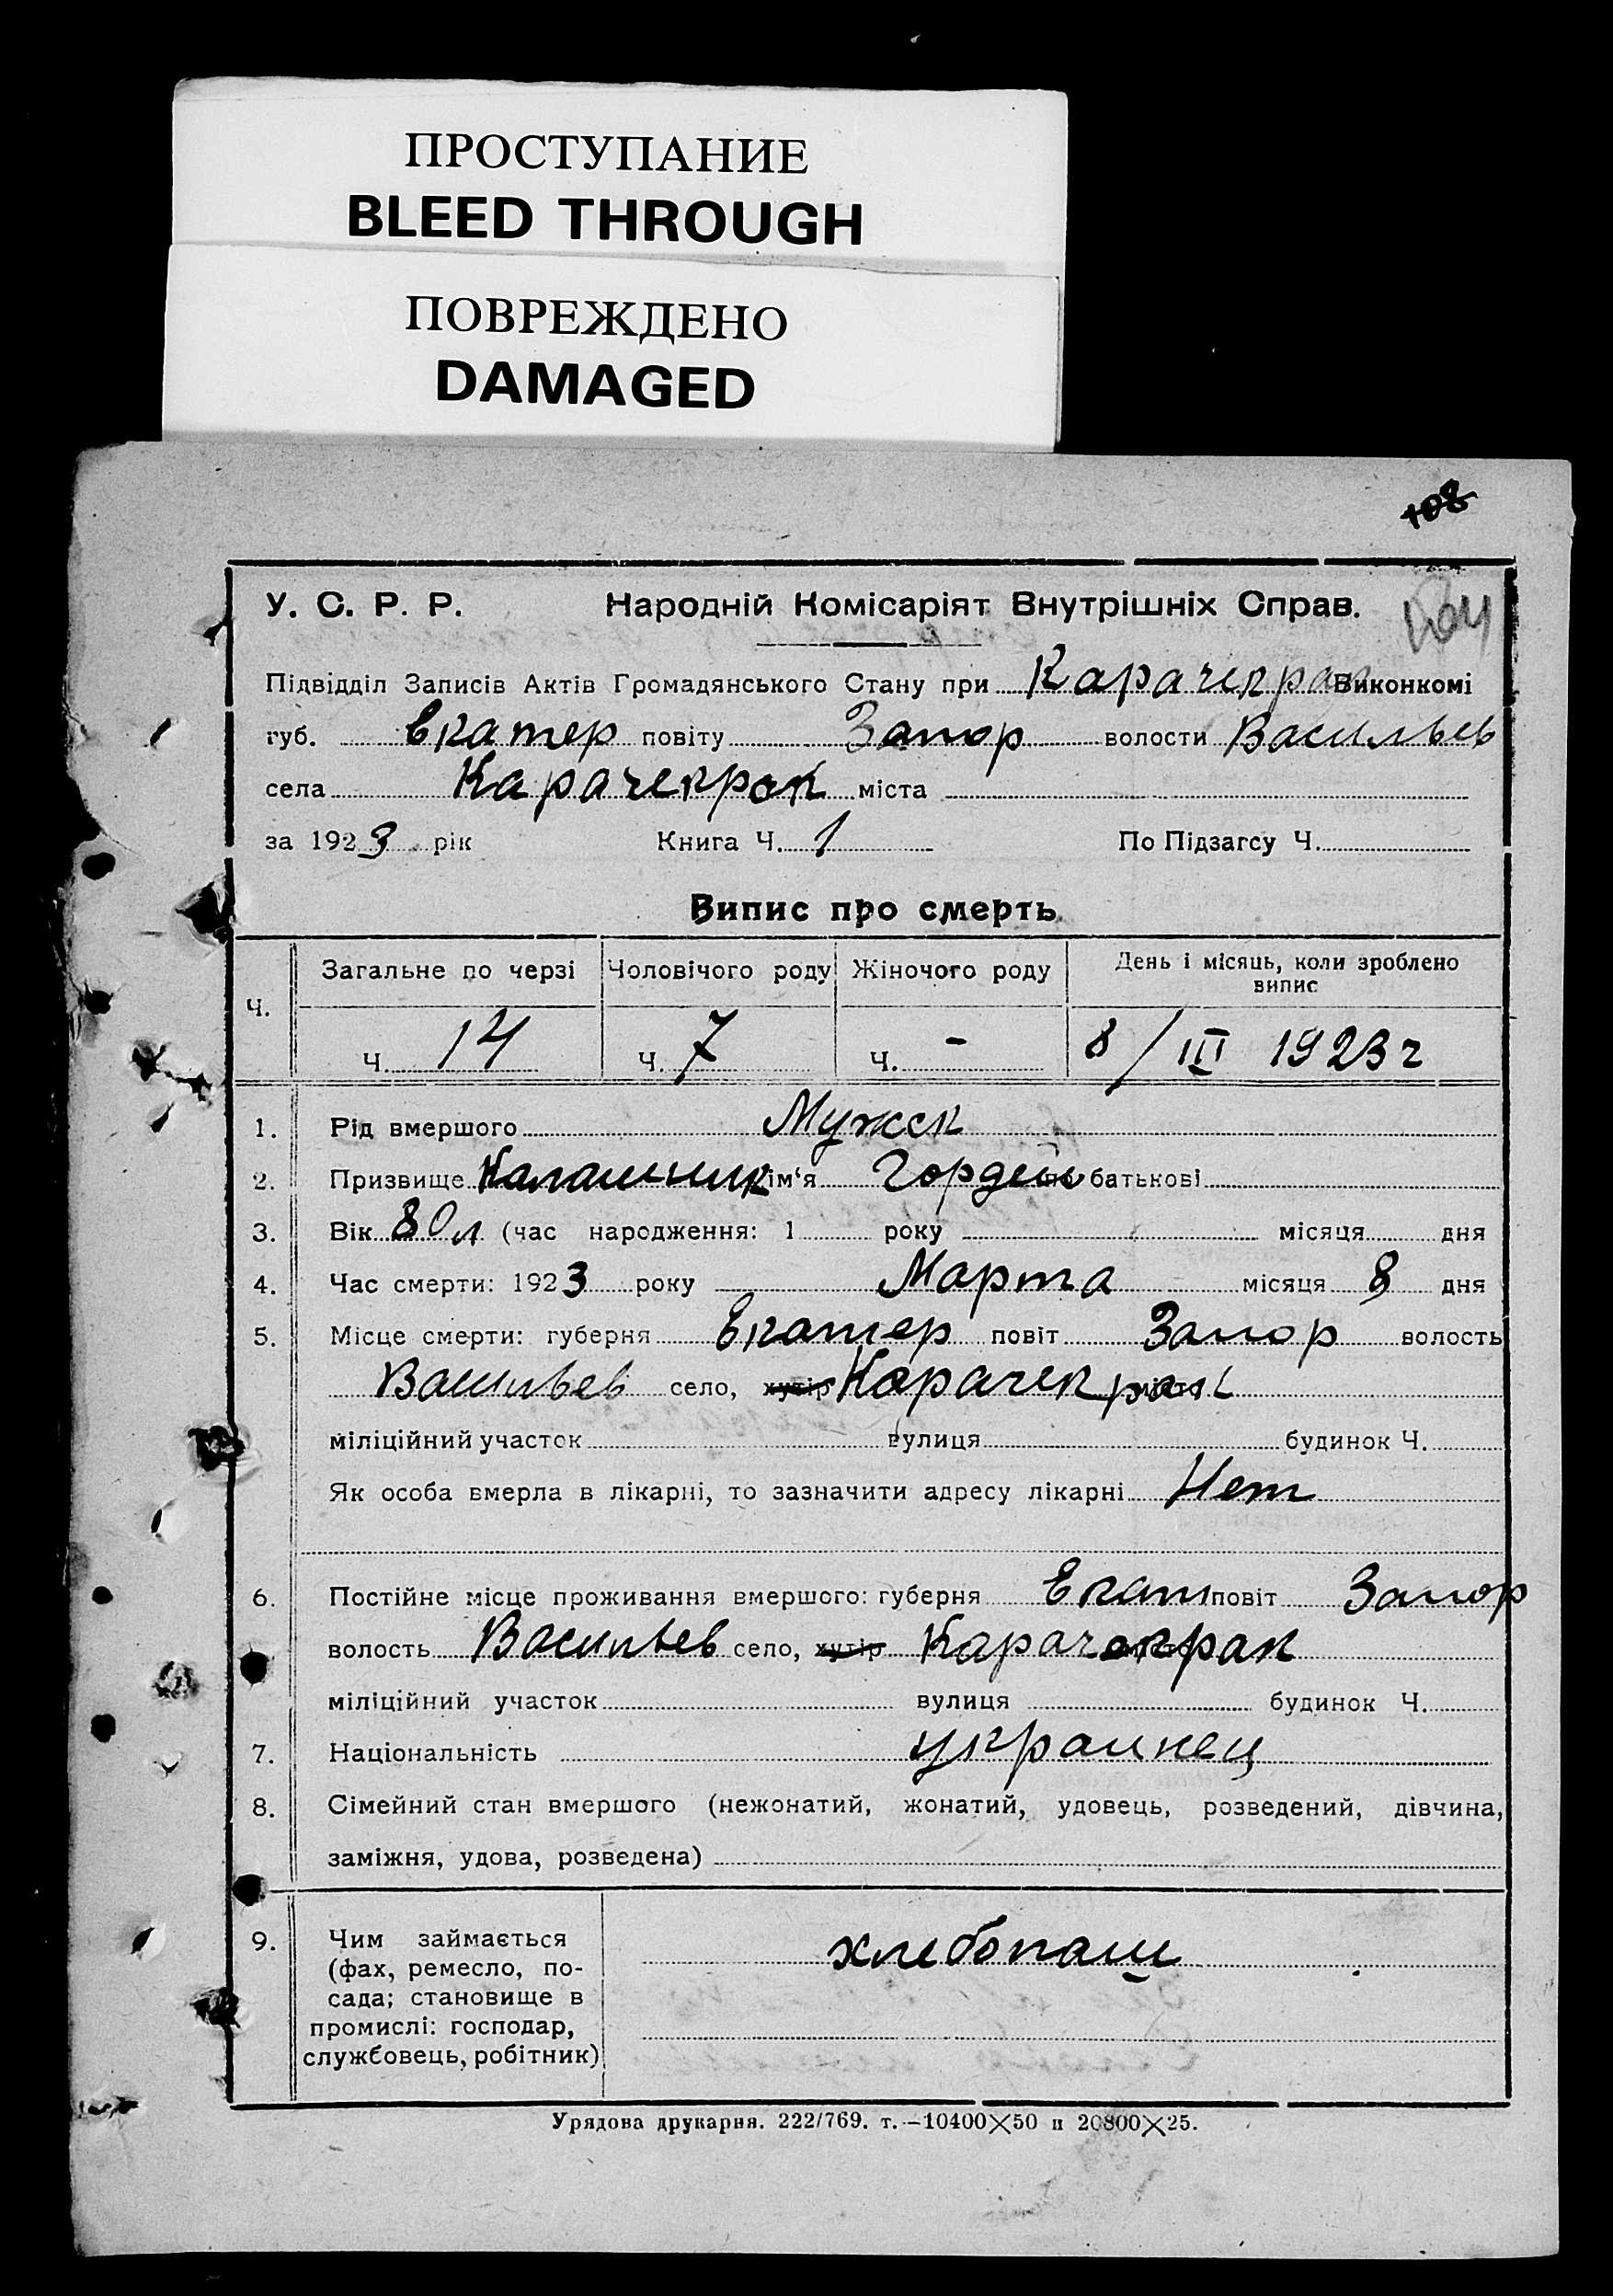 ПРОСТУПАНИЕ
BLEED THROUGH
ПОВРЕЖДЕНО
DAMAGED
108
У. С. Р. Р. Народній Комісаріят Внутрішніх Справ.
Підвідділ Записів Актів Громадянського Стану при Карачекрак Виконкомі
губ. Екатер повіту Запор волости Васильев
села Карачекрак міста
за 1923 рік Книга Ч. 1 По Підзагсу Ч.
Випис про смерть
Ч. Загальне по черзі Чоловічого роду Жіночого роду День і місяць, коли зроблено випис
Ч. 14 Ч. 7 Ч. - 8/III 1923 г
1. Рід вмершого Мужск
2. Призвище Калашник ім'я Гордей по батькові
3. Вік 80 л (час народження: 1 року місяця дня
4. Час смерти: 1923 року Марта місяця 8 дня
5. Місце смерти: губерня Екатер повіт Запор волость
Васильев село, хутір Карачекрак місто
міліційний участок вулиця будинок Ч.
Як особа вмерла в лікарні, то зазначити адресу лікарні Нет
6. Постійне місце проживання вмершого: губерня Екат повіт Запор
волость Васильев село, хутір Карачекрак
міліційний участок вулиця будинок Ч.
7. Національність украинец
8. Сімейний стан вмершого (нежонатий, жонатий, удовець, розведений, дівчина,
заміжня, удова, розведена)
9. Чим займається хлебопаш
(фах, ремесло, по-
сада; становище в
промислі: господар,
службовець, робітник)
Урядова друкарня. 222/769. т.—10400×50 п 20800×25.